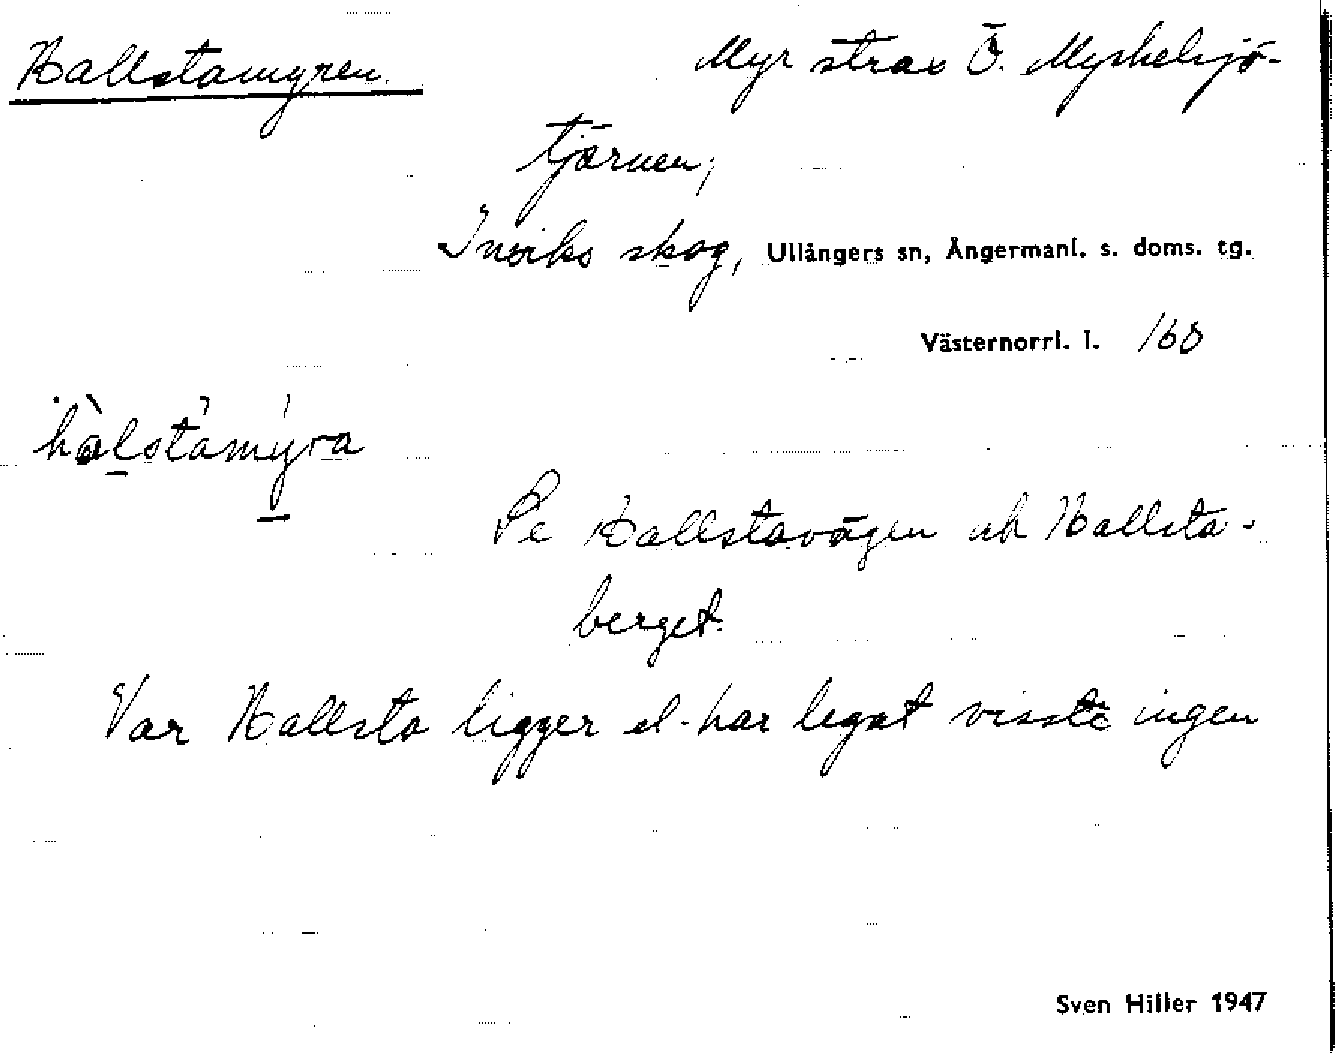 Hallstamyren. Myr strax Ö. Myckelsjö-
tjärnen,
Inviks skog, Ullångers sn, Ångermanl. s. doms. tg.
Västernorrl. l. 168
hàlstamýra
Se Hallstavägen och Hallsta-
berget.
Var Hallsta ligger el. har legat visste ingen
Sven Hiller 1947